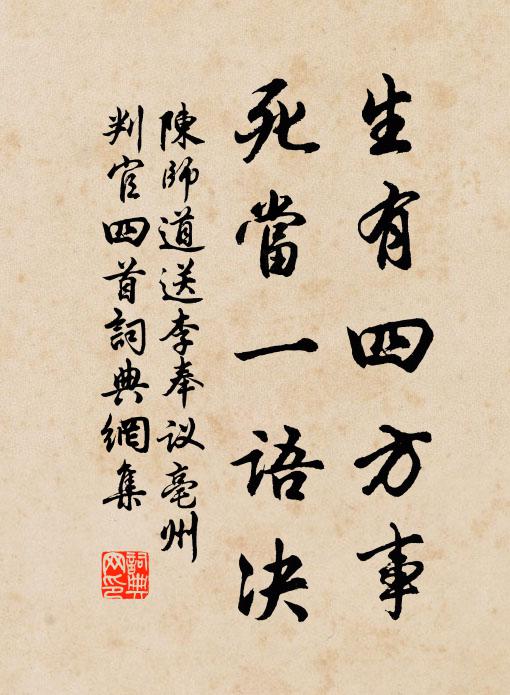 生有四方事
死當一語决
陳師道送李奉议亳州
判官四首詞典網集
詞典
网印